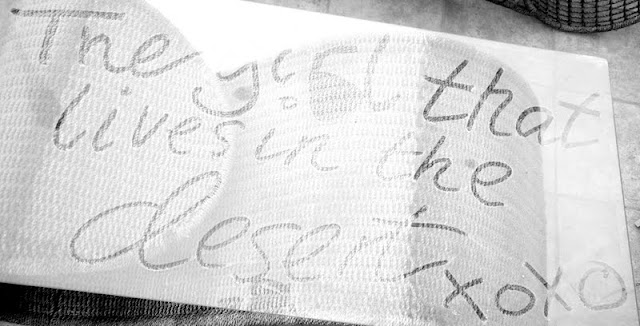 The girl that
lives in the
desert xoxo